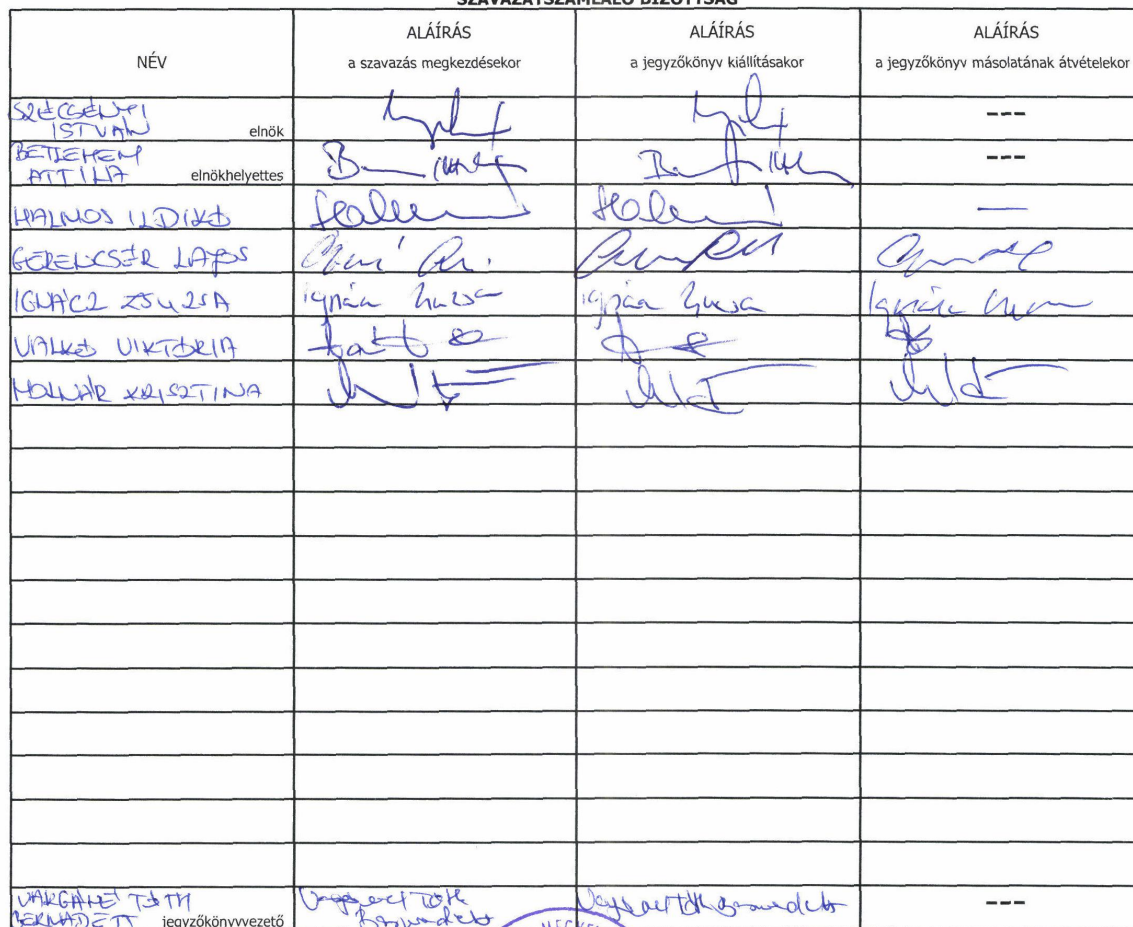 SZAVAZATSZÁMLÁLÓ BIZOTTSÁG
NÉV
ALÁÍRÁS
a szavazás megkezdésekor
ALÁÍRÁS
a jegyzőkönyv kiállításakor
ALÁÍRÁS
a jegyzőkönyv másolatának átvételekor
SZÉCSÉNYI
ISTVÁN elnök ---
BETLEHEM
ATTILA elnökhelyettes ---
HALMOS ILDIKÓ —
GERENCSÉR LAJOS
IGNÁCZ ZSUZSA Ignácz Zsuzsa Ignácz Zsuzsa Ignácz
VALKÓ VIKTÓRIA
MOLNÁR KRISZTINA
VARGÁNÉ TÓTH
BERNADETT jegyzőkönyvvezető Vargáné Tóth Bernadett Vargáné Tóth Bernadett ---